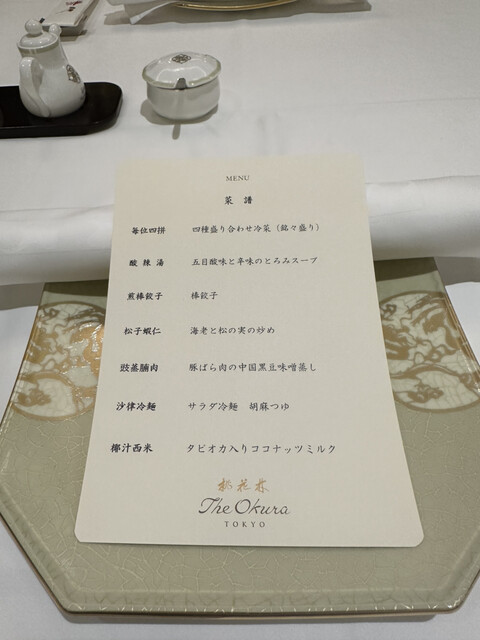 MENU
菜譜
毎位四拼 四種盛り合わせ冷菜（銘々盛り）
酸辣湯 五目酸味と辛味のとろみスープ
煎棒餃子 棒餃子
松子蝦仁 海老と松の実の炒め
豉蒸腩肉 豚ばら肉の中国黒豆味噌蒸し
沙律冷麺 サラダ冷麺 胡麻つゆ
椰汁西米 タピオカ入りココナッツミルク
桃花林
The Okura
TOKYO